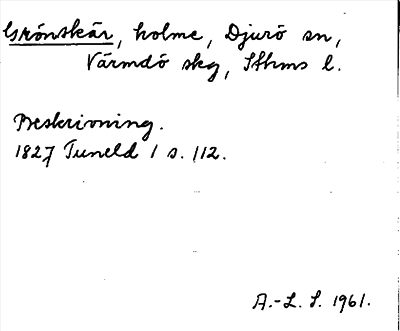 Grönskär, holme, Djurö sn,
Värmdö skg, Sthms l.
Beskrivning.
1827 Tuneld 1 s. 112.
A.-L. S. 1961.